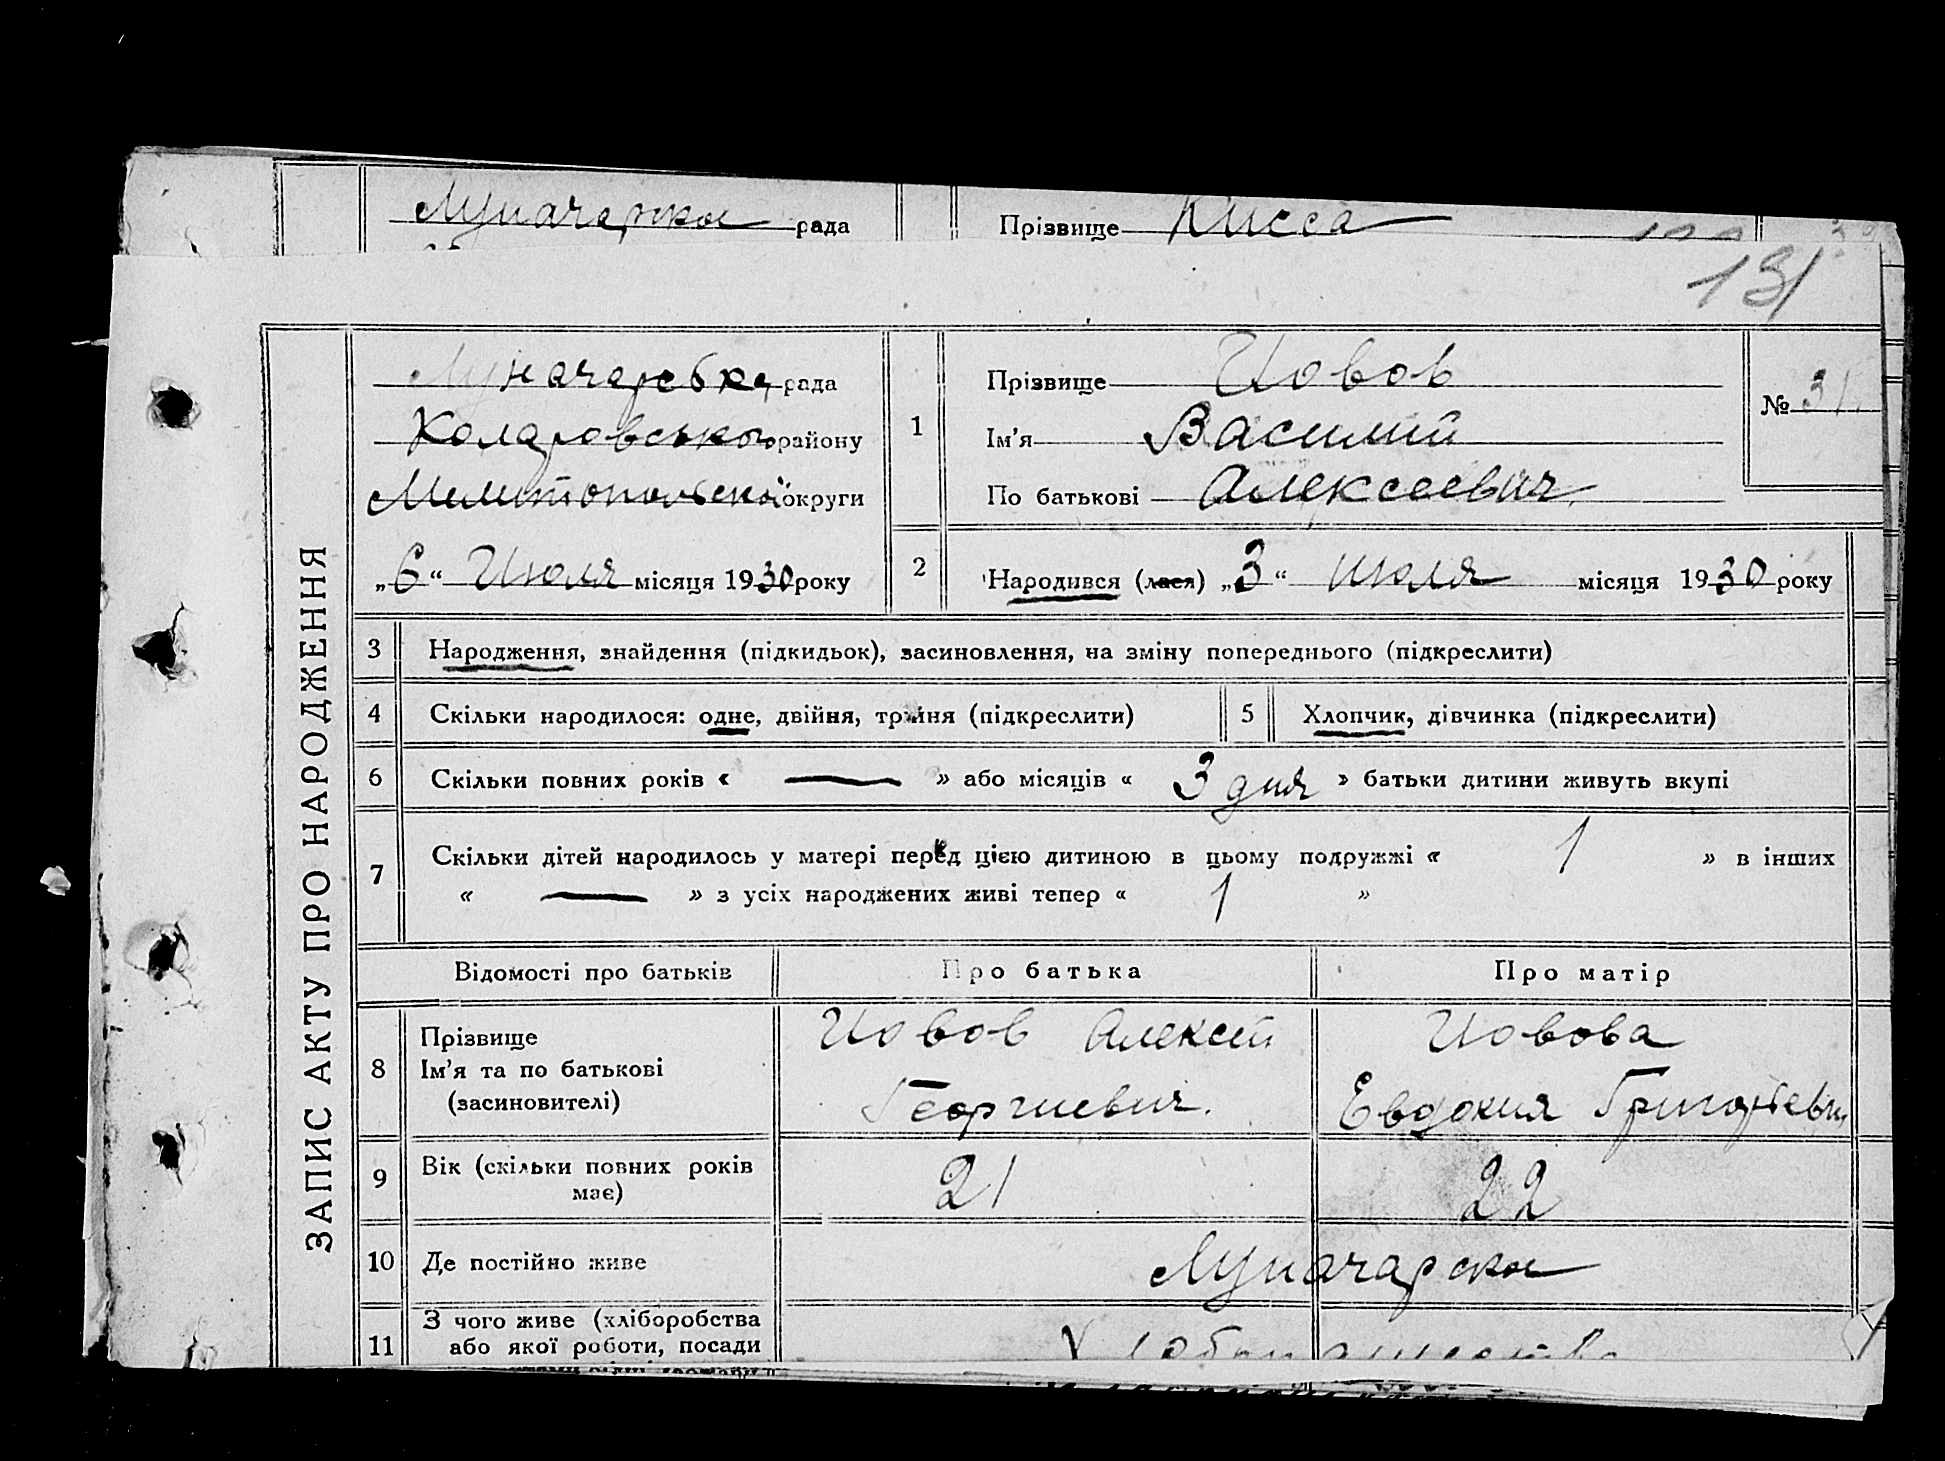 Луначарска рада
Прізвище Кисса
131
ЗАПИС АКТУ ПРО НАРОДЖЕННЯ
Луначарська рада
Коларовського району
Мелитопольської округи
„6“ Июля місяця 1930 року
1
Прізвище Иовов
Ім'я Василий
По батькові Алексеевич
№ 31
2
Народився (лася) „3“ июля місяця 1930 року
3 Народження, знайдення (підкидьок), засиновлення, на зміну попереднього (підкреслити)
4 Скільки народилося: одне, двійня, трійня (підкреслити) 5 Хлопчик, дівчинка (підкреслити)
6 Скільки повних років « — » або місяців « 3 дня » батьки дитини живуть вкупі
7 Скільки дітей народилось у матері перед цією дитиною в цьому подружжі « 1 » в інших
« — » з усіх народжених живі тепер « 1 »
Відомості про батьків Про батька Про матір
8 Прізвище
Ім'я та по батькові
(засиновителі)
Иовов Алексей
Георгиевич.
Иовова
Евдокия Григорьевн
9 Вік (скільки повних років
має)
21 22
10 Де постійно живе Луначарска
11 З чого живе (хліборобства
або якої роботи, посади